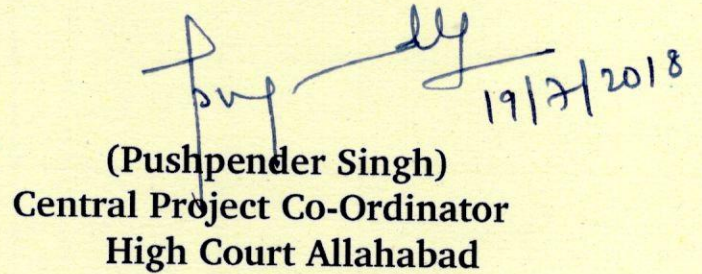 19/7/2018
(Pushpender Singh)
Central Project Co-Ordinator
High Court Allahabad